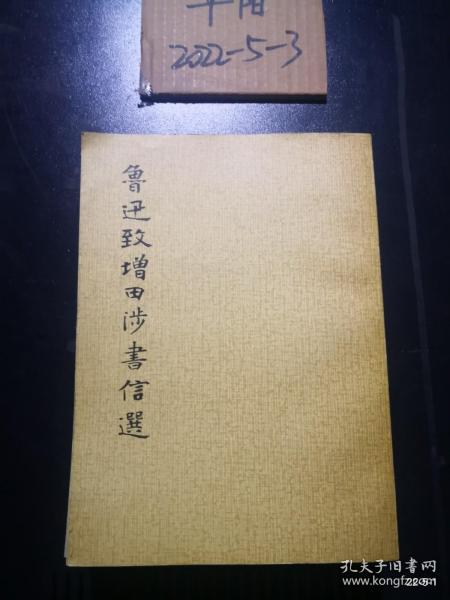 平阳
2022-5-3
鲁迅致增田涉書信選
孔夫子旧书网
www.kongfz.com
22-5-1